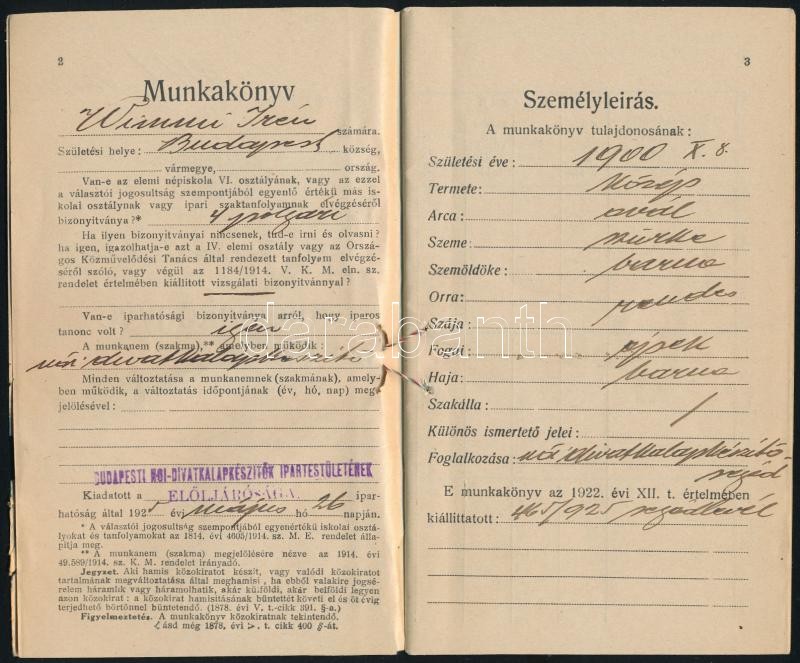 2
Munkakönyv
Wimmi Irén
számára.
Születési helye: Budapest község,
vármegye, ország.
Van-e az elemi népiskola VI. osztályának, vagy az ezzel
a választói jogosultság szempontjából egyenlő értékü más is-
kolai osztálynak vagy ipari szaktanfolyamnak elvégzéséről
bizonyitványa?* 4 polgári
Ha ilyen bizonyitványai nincsenek, tud-e irni és olvasni?
ha igen, igazolhatja-e azt a IV. elemi osztály vagy az Orszá-
gos Közművelődési Tanács által rendezett tanfolyam elvégzé-
séről szóló, vagy végül az 1184/1914. V. K. M. eln. sz.
rendelet értelmében kiállitott vizsgálati bizonyitvánnyal?
Van-e iparhatósági bizonyitványa arról, hogy iparos
tanonc volt? igen
A munkanem (szakma),** amelyben működik:
női divatkalapkészitő
Minden változtatása a munkanemnek (szakmának), amely-
ben működik, a változtatás időpontjának (év, hó, nap) meg-
jelölésével:
BUDAPESTI NŐI-DIVATKALAPKÉSZITŐK IPARTESTÜLETÉNEK
ELÖLJÁRÓSÁGA
Kiadatott a ipar-
hatóság által 1925 évi május hó 26 napján.
* A választói jogosultság szempontjából egyenértékü iskolai osztá-
lyokat és tanfolyamokat az 1814. évi 4605/1914. sz. M. E. rendelet álla-
pitja meg.
** A munkanem (szakma) megjelölésére nézve az 1914. évi
49.589/1914. sz. K. M. rendelet irányadó.
Jegyzet. Aki hamis közokiratot készit, vagy valódi közokiratot
tartalmának megváltoztatása által meghamisi, ha ebből valakire jogsé-
relem háramlik vagy háramolhatik, akár külföldi, akár belföldi legyen
azon közokirat: a közokirat hamisitásának büntettét követi el és öt évig
terjedhető börtönnel büntetendő. (1878. évi V. t.-cikk 391. §-a.)
Figyelmeztetés. A munkakönyv közokiratnak tekintendő.
Lásd még 1878. évi V. t. cikk 400 §-át.
3
Személyleirás.
A munkakönyv tulajdonosának:
Születési éve: 1900 X. 8.
Termete: közép
Arca: ovál
Szeme: szürke
Szemöldöke: barna
Orra: rendes
Szája:
Fogai: épek
Haja: barna
Szakálla: /
Különös ismertető jelei:
Foglalkozása: női divatkalapkészitő-
segéd
E munkakönyv az 1922. évi XII. t. értelmében
kiállittatott: 465/925 segédlevél
darabanth